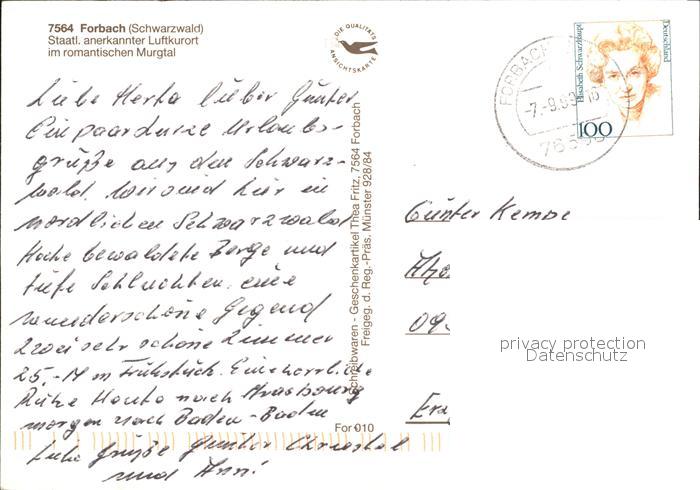 7564 Forbach (Schwarzwald)
Staatl. anerkannter Luftkurort
im romantischen Murgtal
DIE QUALITÄTS
ANSICHTSKARTE
Liebe Herta lieber Günter
Ein paar kurze Urlaubs-
grüße aus dem Schwarz-
wald. Wir sind hier im
nördlichen Schwarzwald
Hohe bewaldete Berge und
tiefe Schluchten. eine
wunderschöne Gegend
2 zwei sehr schöne Zimmer
25,- M m Frühstück. Eine herrliche
Ruhe Heute nach Strasbourg
morgen nach Baden-Baden
Liebe Grüße Günter Christel
und Anni
Schreibwaren - Geschenkartikel Thea Fritz, 7564 Forbach
Freigeg. d. Reg.-Präs. Münster 928/84
For 010
FORBACH
-7.-9.
Elisabeth Schwarzhaupt
Deutschland
100
Günter Kempe
09
privacy protection
Datenschutz